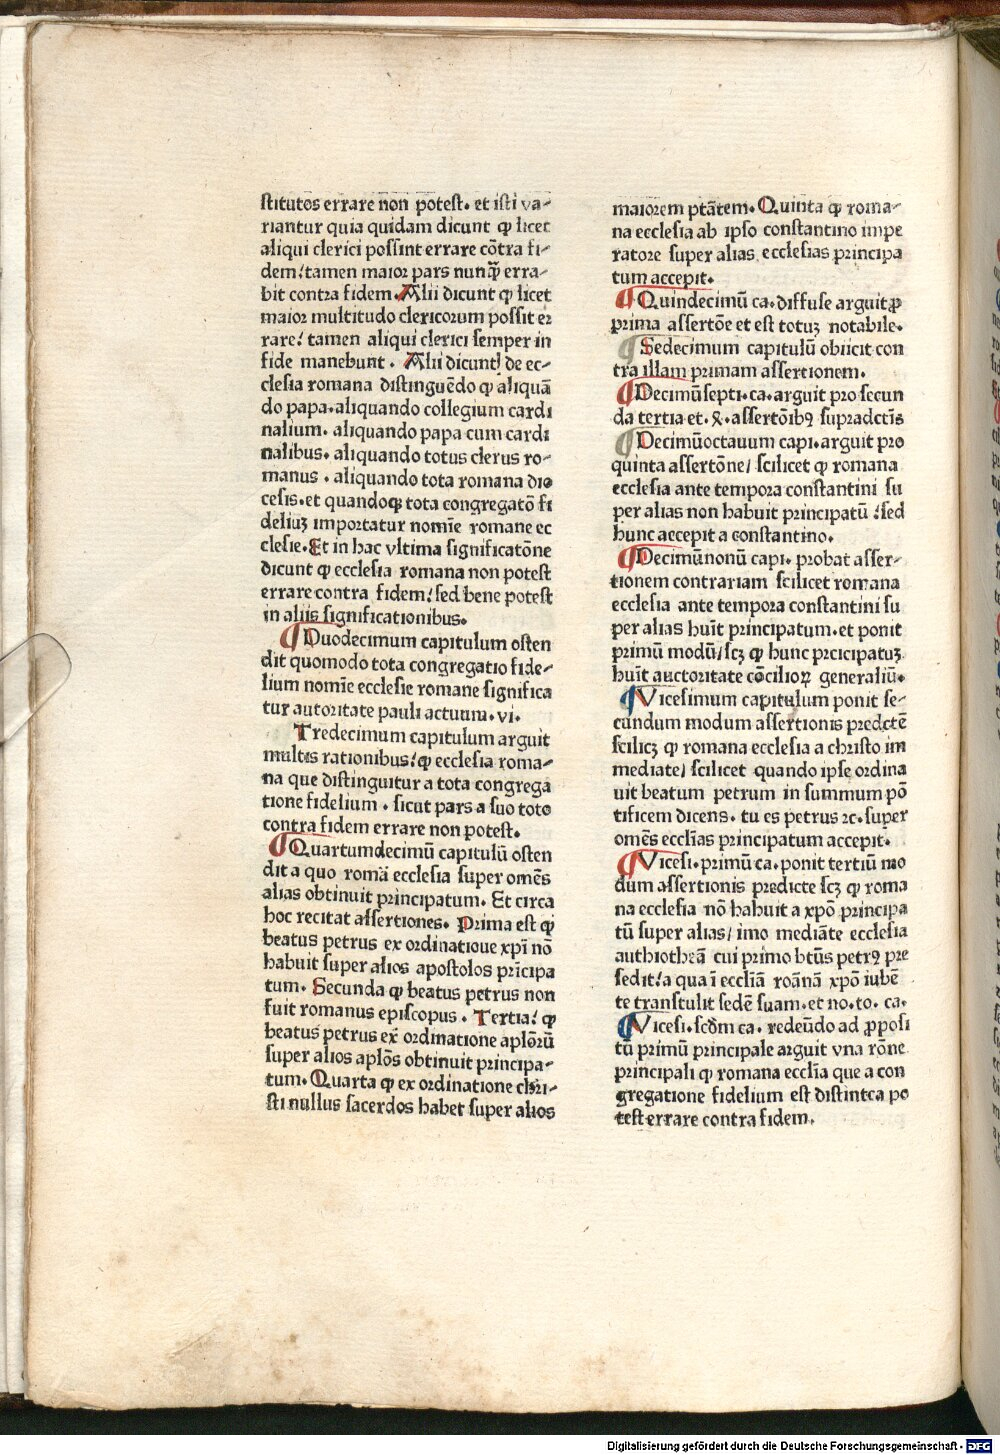 stitutos errare non potest. et isti va-
riantur quia quidam dicunt ꝙ licet
aliqui clerici possint errare cōtra fi-
dem: tamen maior pars nunq̄ȝ erra-
bit contra fidem. Alii dicunt ꝙ licet
maior multitudo clericorum possit er
rare: tamen aliqui clerici semper in
fide manebunt. Alii dicunt de ec-
clesia romana distinguēdo ꝙ aliquā
do papa. aliquando collegium cardi
nalium. aliquando papa cum cardi
nalibus. aliquando totus clerus ro-
manus. aliquando tota romana dio
cesis. et quandoqꝫ tota congregatō fi
deliuꝫ importatur nomīe romane ec
clesie. Et in hac vltima significatōne
dicunt ꝙ ecclesia romana non potest
errare contra fidem: sed bene potest
in aliis significationibus.
¶ Duodecimum capitulum osten
dit quomodo tota congregatio fide-
lium nomīe ecclesie romane significa
tur autoritate pauli actuum. vi.
Tredecimum capitulum arguit
multis rationibus: ꝙ ecclesia roma-
na que distinguitur a tota congrega
tione fidelium. sicut pars a suo toto
contra fidem errare non potest.
¶ Quartumdecimū capitulū osten
dit a quo romā ecclesia super omēs
alias obtinuit principatum. Et circa
hoc recitat assertiones. Prima est ꝙ
beatus petrus ex ordinatioue xp̄i nō
habuit super alios apostolos prīcipa
tum. Secunda ꝙ beatus petrus non
fuit romanus episcopus. Tertia: ꝙ
beatus petrus ex ordinatione aplōrū
super alios aplōs obtinuit principa-
tum. Quarta ꝙ ex ordinatione chri-
sti nullus sacerdos habet super alios
maiorem ptātem. Quinta ꝙ roma-
na ecclesia ab ipso constantino impe
ratore super alias ecclesias principa
tum accepit.
¶ Quindecimū ca. diffuse arguit ꝓ
prima assertōe et est totuꝫ notabile.
¶ Sedecimum capitulū obiicit con
tra illam primam assertionem.
¶ Decimūsepti. ca. arguit pro secun
da tertia et. 4. assertōibꝰ supradctīs
¶ Decimūoctauum capi. arguit pro
quinta assertōne/ scilicet ꝙ romana
ecclesia ante tempora constantini su
per alias non habuit principatū: sed
hunc accepit a constantino.
¶ Decimūnonū capi. probat asser-
tionem contrariam scilicet romana
ecclesia ante tempora constantini su
per alias huīt principatum. et ponit
primū modū/ scꝫ ꝙ hunc prcicipatuꝫ
huīt auctoritate cōcilioꝝ generaliū.
¶ Vicesimum capitulum ponit se-
cundum modum assertionis predctē
scilicꝫ ꝙ romana ecclesia a christo im
mediate/ scilicet quando ipse ordina
uit beatum petrum in summum pō
tificem dicens. tu es petrus ⁊c. super
omēs ecclīas principatum accepit.
¶ Vicesi. primū ca. ponit tertiū mo
dum assertionis predicte scꝫ ꝙ roma
na ecclesia nō habuit a xp̄o principa
tū super alias/ imo mediāte ecclesia
anthiotheā cui primo btūs petrꝰ pre
sedit: a qua ī ecclīā roānā xp̄o iubē
te transtulit sedē suam. et no. to. ca.
¶ Vicesi. scdm ca. redeūdo ad ꝓposi
tū primū principale arguit vna rōne
principali ꝙ romana ecclīa que a con
gregatione fidelium est distintca po
test errare contra fidem.
Digitalisierung gefördert durch die Deutsche Forschungsgemeinschaft - DFG